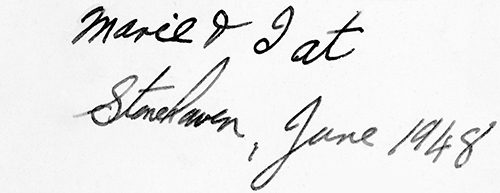 Marie & I at
Stonehaven, June 1948